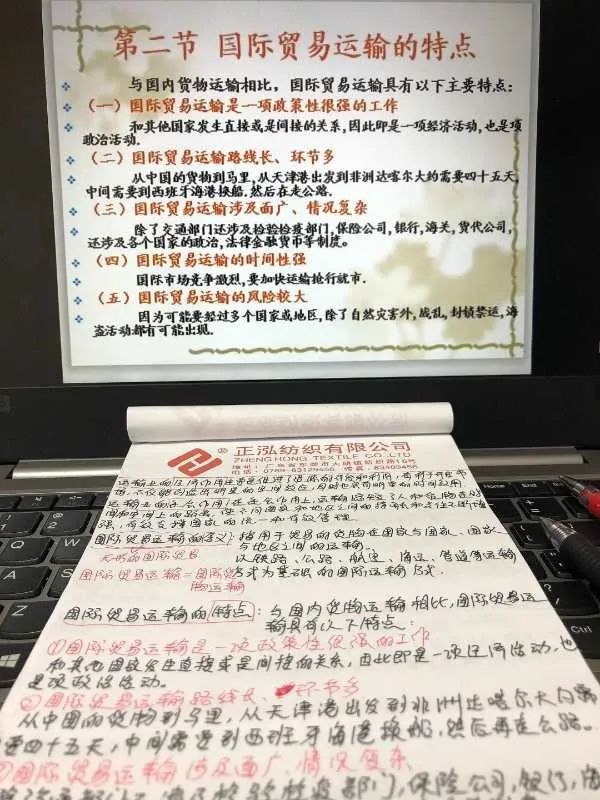 第二节 国际贸易运输的特点
与国内货物运输相比，国际贸易运输具有以下主要特点：
（一）国际贸易运输是一项政策性很强的工作
和其他国家发生直接或是间接的关系,因此即是一项经济活动,也是项
政治活动.
（二）国际贸易运输路线长、环节多
从中国的货物到马里,从天津港出发到非洲达喀尔大约需要四十五天,
中间需要到西班牙海港换船.然后在走公路.
（三）国际贸易运输涉及面广、情况复杂
除了交通部门还涉及检验检疫部门,保险公司,银行,海关,货代公司,
还涉及各个国家的政治,法律金融货币等制度。
（四）国际贸易运输的时间性强
国际市场竞争激烈,要加快运输抢行就市.
（五）国际贸易运输的风险较大
因为可能要经过多个国家或地区,除了自然灾害外,战乱,封锁禁运,海
盗活动都有可能出现.
正泓纺织有限公司
ZHENG HONG TEXTILE CO.,LTD
国际贸易运输的含义：指用于贸易的货物在国家与国家、国家
与地区之间的运输.
无形的国际贸易
以铁路、公路、航空、海运、管道等运输
国际贸易运输=国际货物运输
方式为单元的国际运输形式.
国际贸易运输的特点：与国内货物运输相比,国际贸易运
输具有以下特点：
①国际贸易运输是一项政策性很强的工作
和其他国家发生直接或是间接的关系,因此即是一项经济活动,也
是项政治活动.
②国际贸易运输路线长、环节多
从中国的货物到马里,从天津港出发到非洲达喀尔大约需
要四十五天,中间需要到西班牙海港换船,然后再走公路.
③国际贸易运输涉及面广、情况复杂
部门,保险公司,银行,海